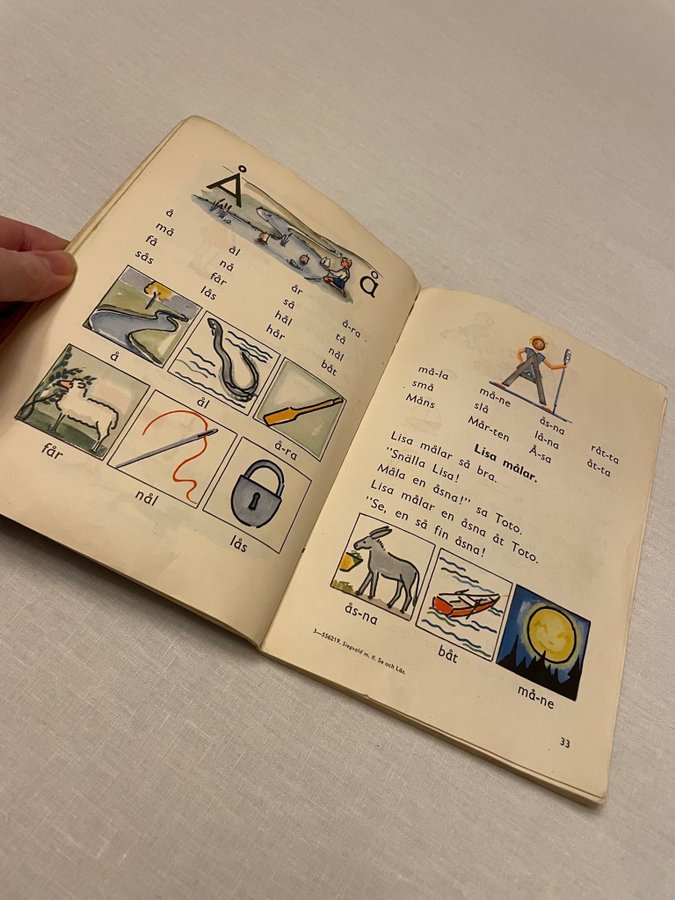 Å
å
å ål år å-ra
må nå så tå
få får hål nål
sås lås hår båt
å
ål
å-ra
får
nål
lås
må-la må-ne ås-na råt-ta
små slå lå-na åt-ta
Måns Mår-ten Å-sa
Lisa målar.
Lisa målar så bra.
"Snälla Lisa!
Måla en åsna!" sa Toto.
Lisa målar en åsna åt Toto.
"Se, en så fin åsna!
ås-na
båt
må-ne
3—556219, Singvald m. fl. Se och Läs.
33